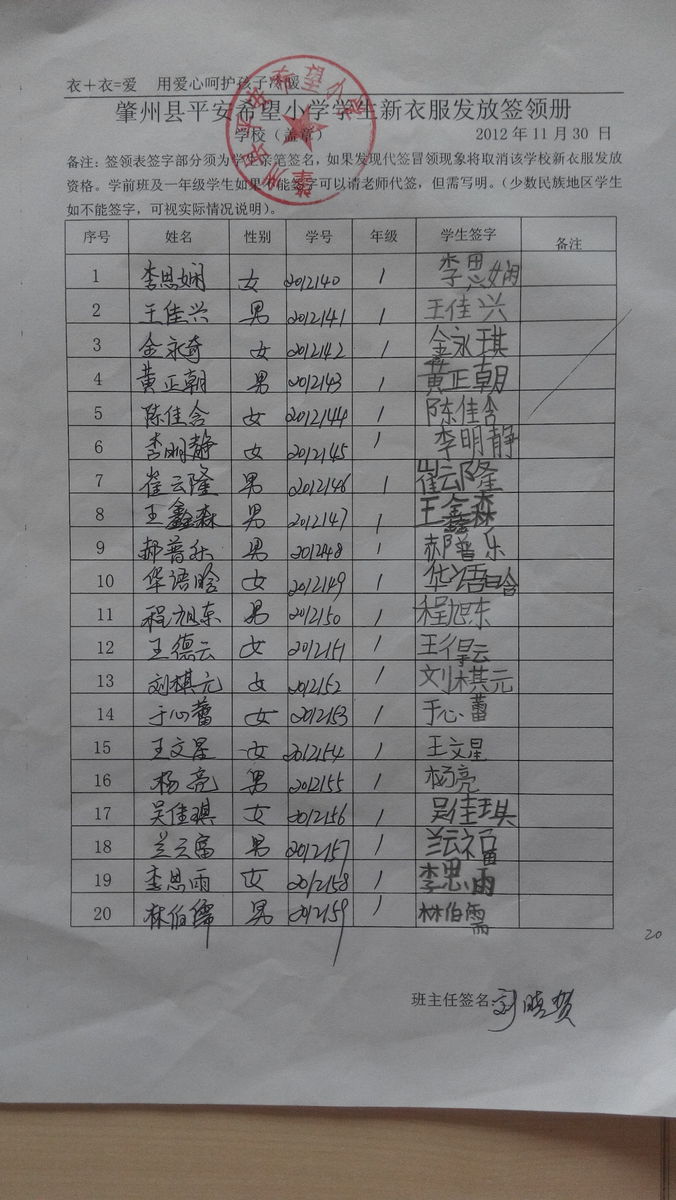 衣＋衣=爱 用爱心呵护孩子冷暖
肇州县平安希望小学学生新衣服发放签领册
学校（盖章） 2012 年 11 月 30 日
备注：签领表签字部分须为学生亲笔签名，如果发现代签冒领现象将取消该学校新衣服发放
资格。学前班及一年级学生如果不能签字可以请老师代签，但需写明。（少数民族地区学生
如不能签字，可视实际情况说明）。
序号 姓名 性别 学号 年级 学生签字 备注
1 李思娴 女 2012140 1 李思娴
2 王佳兴 男 2012141 1 王佳兴
3 金永奇 女 2012142 1 金永琪
4 黄正朝 男 2012143 1 黄正朝
5 陈佳含 女 2012144 1 陈佳含
6 李明静 女 2012145 1 李明静
7 崔云隆 男 2012146 1 崔云隆
8 王鑫森 男 2012147 1 王鑫森
9 郝普乐 男 2012148 1 郝普乐
10 华语晗 女 2012149 1 华语晗
11 程旭东 男 2012150 1 程旭东
12 王德云 女 2012151 1 王得云
13 刘棋元 女 2012152 1 刘棋元
14 于心蕾 女 2012153 1 于心蕾
15 王文星 女 2012154 1 王文星
16 杨亮 男 2012155 1 杨亮
17 吴佳琪 女 2012156 1 吴佳琪
18 兰云富 男 2012157 1 兰云
19 李思雨 女 2012158 1 李思雨
20 林伯儒 男 2012159 1 林伯儒
20
班主任签名: 刘晓贺